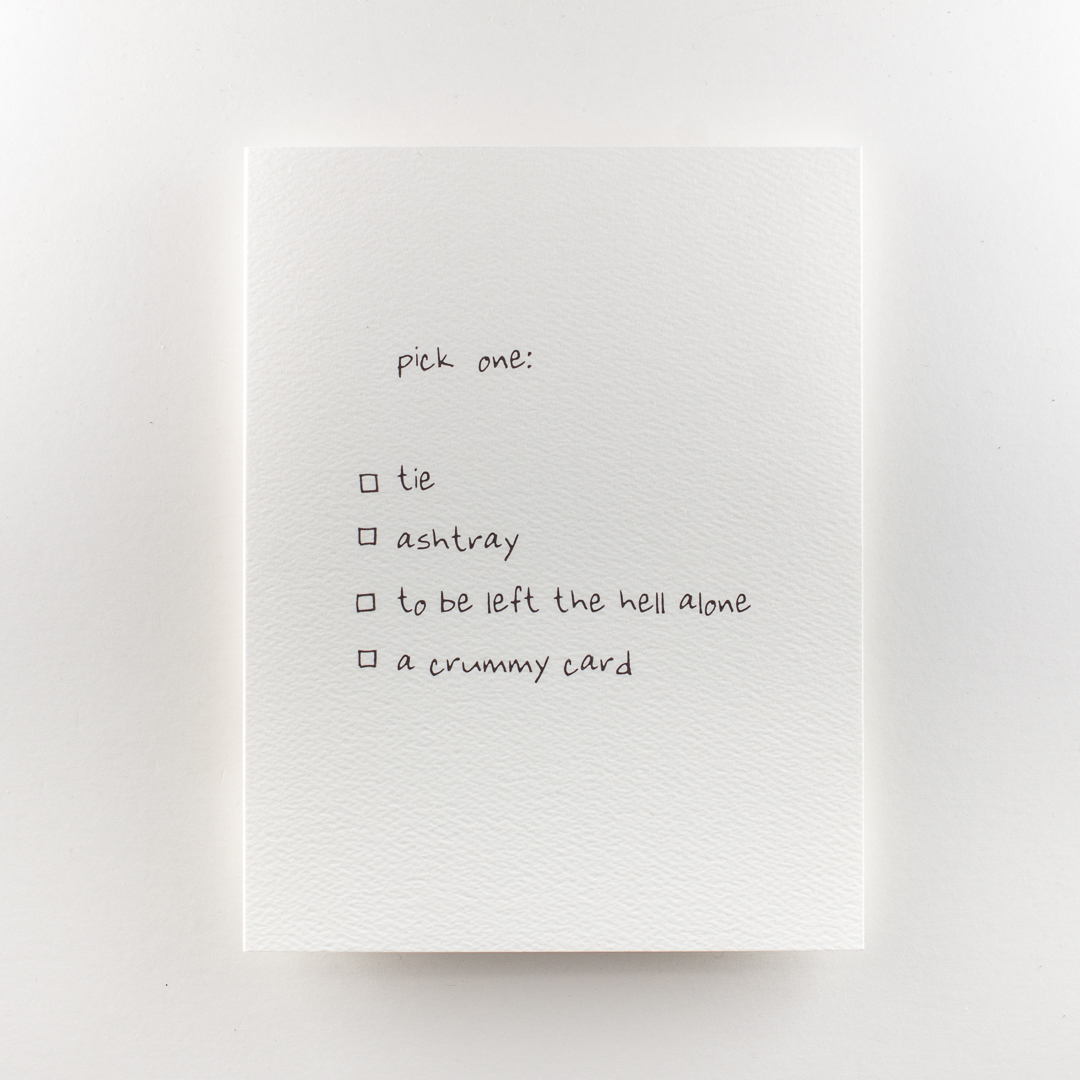 pick one:
tie
ashtray
to be left the hell alone
a crummy card